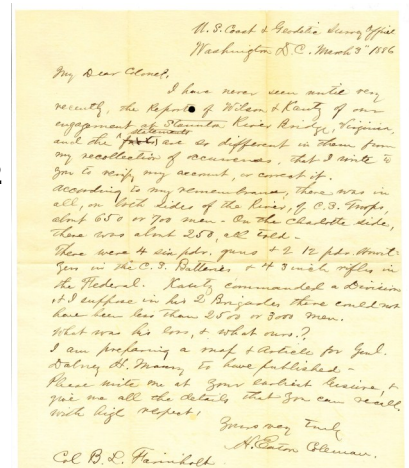 U.S. Coast & Geodetic Survey Office
Washington D.C. March 3rd 1886
My Dear Colonel,
I have never seen until very
recently, the Reports of Wilson & Kautz of our
engagement at Staunton River Bridge, Virginia,
statements
and the facts are so different in them from
my recollection of occurences, that I write to
you to verify my account, or correct it.
According to my remembrance, there was in
all, on both sides of the River, of C.S. Troops,
about 650 or 700 men - On the Charlotte side,
there was about 250, all told -
There were 4 six pdr. guns & 2 12 pdr. Howit-
zers in the C.S. Batteries & 4 3 inch rifles in
the Federal. Kautz commanded a Division
& I suppose in his 2 Brigades there could not
have been less than 2500 or 3000 men.
What was his loss, & what ours?
I am preparing a map & Article for Genl.
Dabney H. Maury to have published -
Please write me at your earliest leisure, &
give me all the details that you can recall.
With high respect,
Yours very truly
H. Eaton Coleman.
Col B. L. Farinholt.